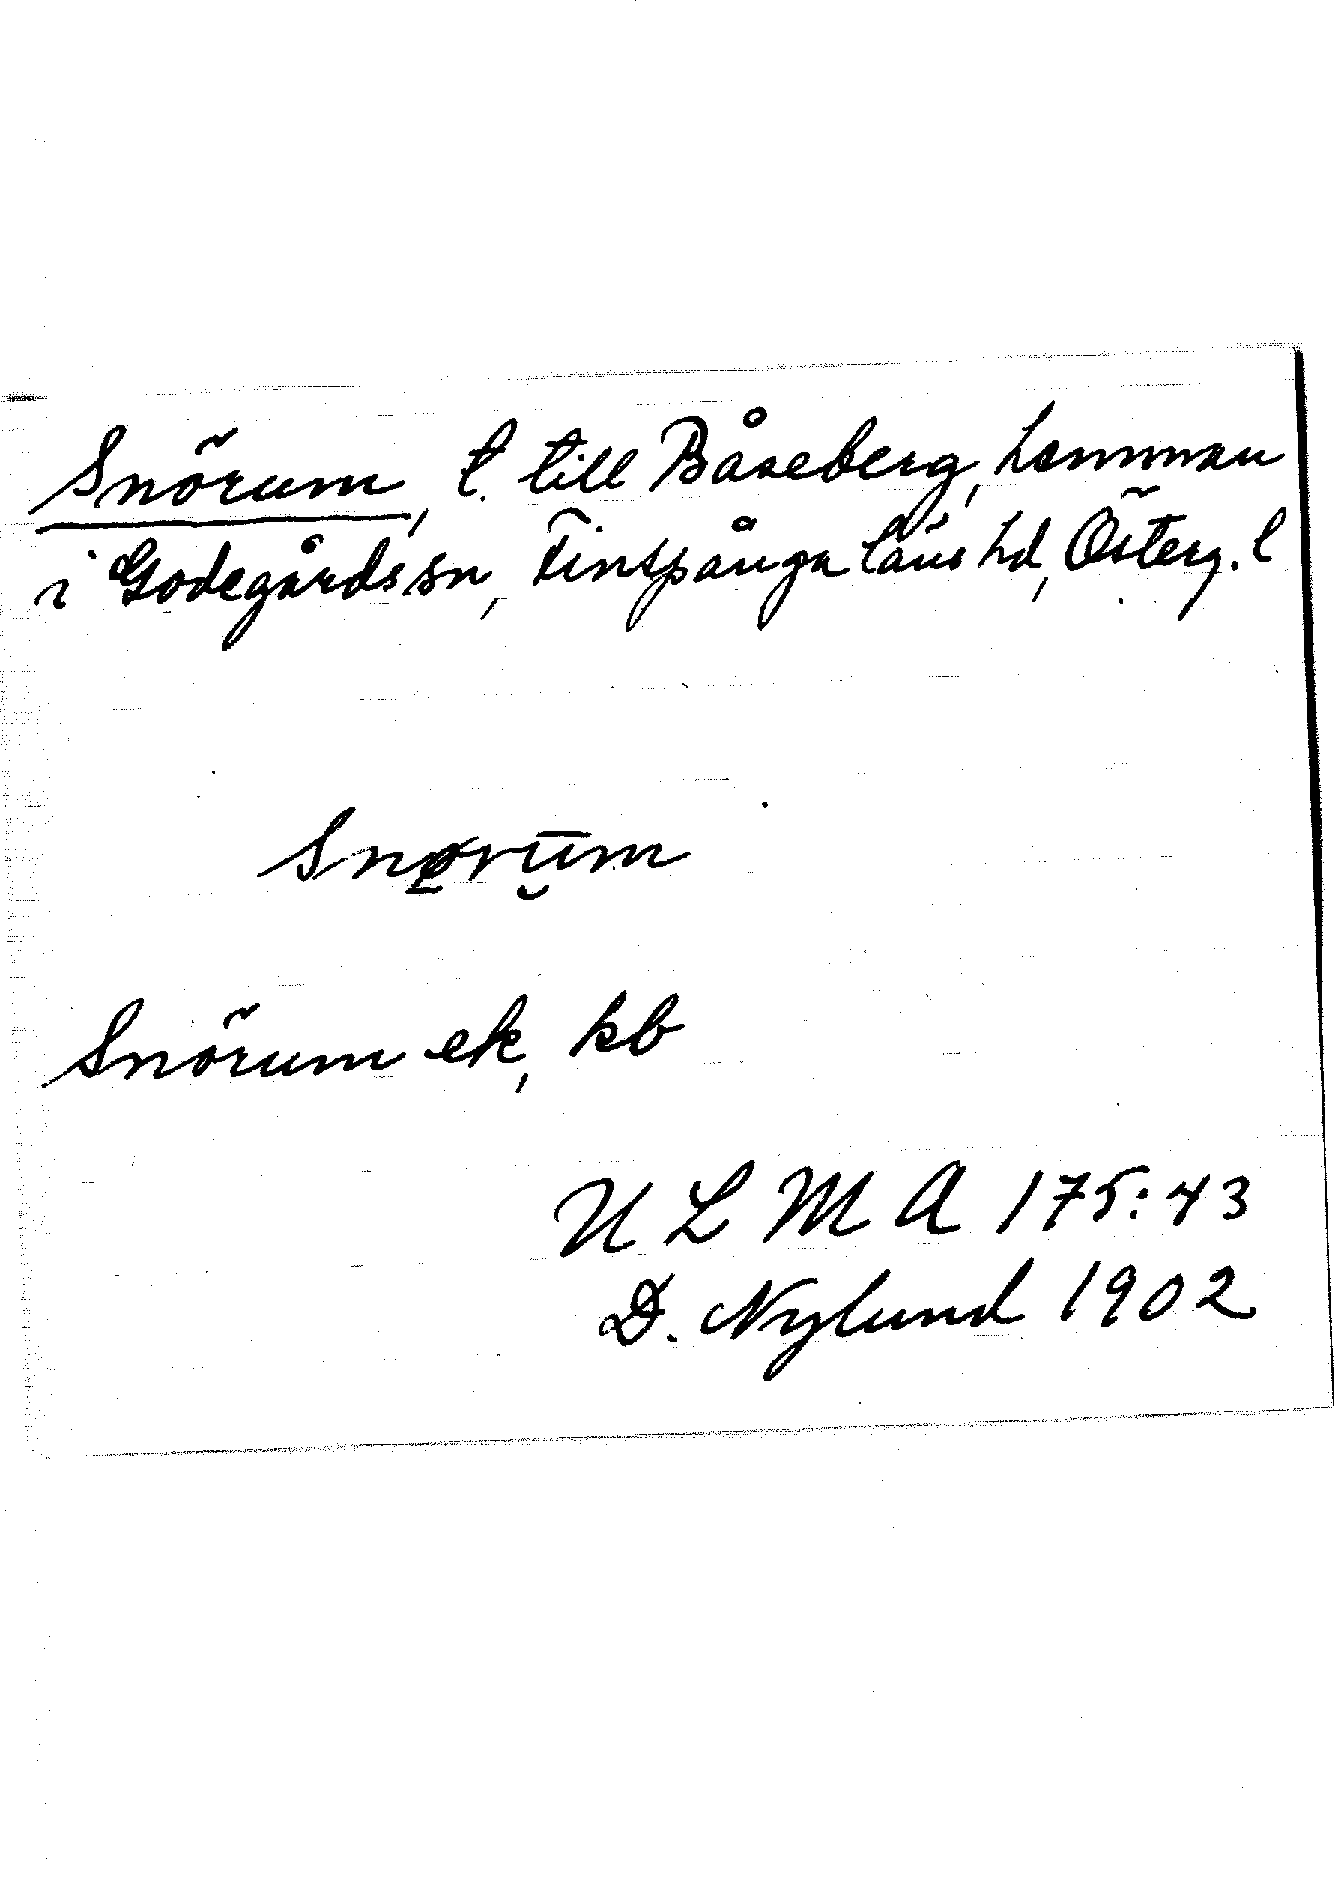 Snörum, t. till Båseberg, hemman
i Godegårds sn, Finspånga läns hd, Österg. l
Snørūm
Snörum ek, kb
ULMA 175:43
D. Nylund 1902